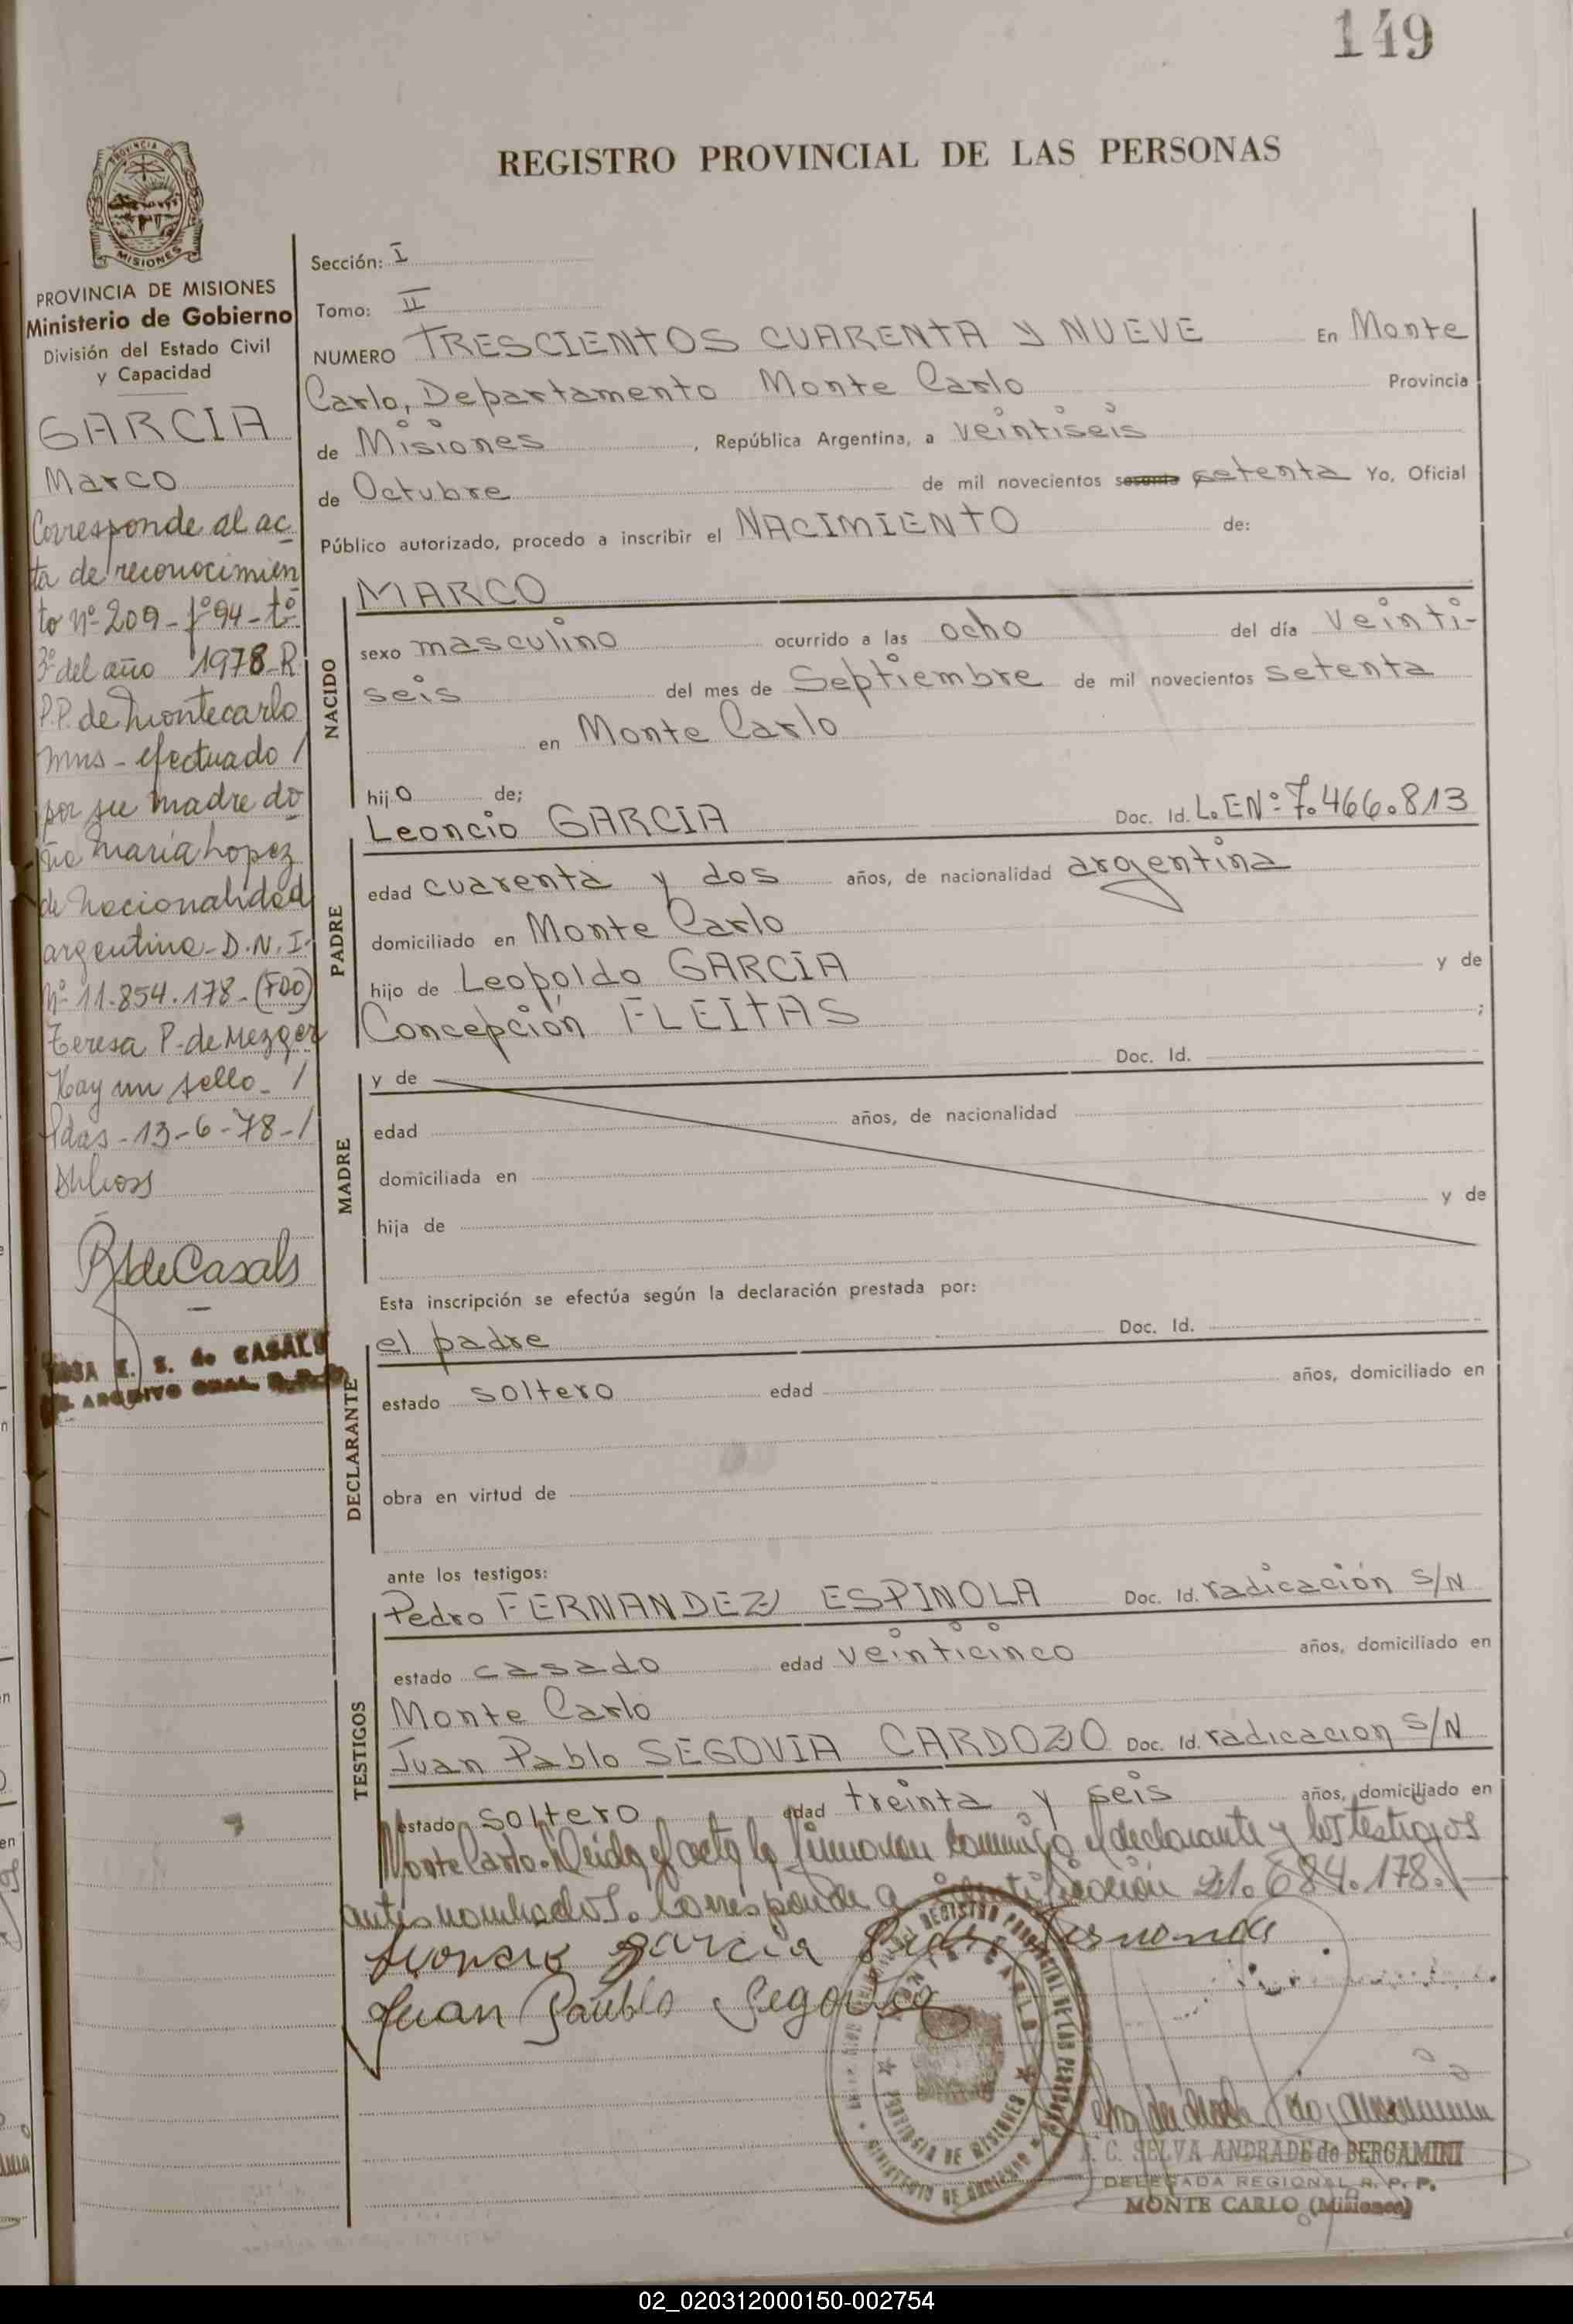 149
REGISTRO PROVINCIAL DE LAS PERSONAS
PROVINCIA DE
MISIONES
PROVINCIA DE MISIONES
Ministerio de Gobierno
División del Estado Civil
y Capacidad
GARCIA
Marco
Corresponde al ac
ta de reconocimien
to nº 209 - fº 94 - tº
3º del año 1978 - R.
P.P. de Montecarlo
Mns - efectuado /
por su madre do
ña María Lopez
de nacionalidad
argentina - D.N.I.
Nº 11.854.178 - (FDO)
Teresa P. de Mezger
Hay un sello - /
Pdas - 13-6-78 - /
RSdeCasals
ROSA E. S. de CASALS
ARCHIVO GRAL. R.P.P.
Sección: I
Tomo: II
NUMERO TRESCIENTOS CUARENTA Y NUEVE En Monte
Carlo, Departamento Monte Carlo Provincia
de Misiones, República Argentina, a veintiseis
de Octubre de mil novecientos sesenta setenta Yo, Oficial
Público autorizado, procedo a inscribir el NACIMIENTO de:
NACIDO
MARCO
sexo masculino ocurrido a las ocho del día veinti-
seis del mes de Septiembre de mil novecientos setenta
en Monte Carlo
hijo de;
PADRE
Leoncio GARCIA Doc. Id. L.E Nº 7.466.813
edad cuarenta y dos años, de nacionalidad argentina
domiciliado en Monte Carlo
hijo de Leopoldo GARCIA y de
Concepción FLEITAS ;
MADRE
y de Doc. Id.
edad años, de nacionalidad
domiciliada en
hija de y de
Esta inscripción se efectúa según la declaración prestada por:
DECLARANTE
el padre Doc. Id.
estado soltero edad años, domiciliado en
obra en virtud de
ante los testigos:
TESTIGOS
Pedro FERNANDEZ ESPINOLA Doc. Id. radicación S/N
estado casado edad veinticinco años, domiciliado en
Monte Carlo
Juan Pablo SEGOVIA CARDOZO Doc. Id. radicacion S/N
estado soltero edad treinta y seis años, domiciliado en
Monte Carlo. Leida el acta la firmaron conmigo el declarante y los testigos
antes nombrados. Corresponde a identificación 21.684.178.
Leoncio garcia
Juan Paublo Segovia
REGISTRO PROVINCIAL DE LAS PERSONAS
MONTE CARLO
PROVINCIA DE MISIONES
MINISTERIO DE GOBIERNO
C. SELVA ANDRADE de BERGAMINI
DELEGADA REGIONAL R. P. P.
MONTE CARLO (Misiones)
02_020312000150-002754